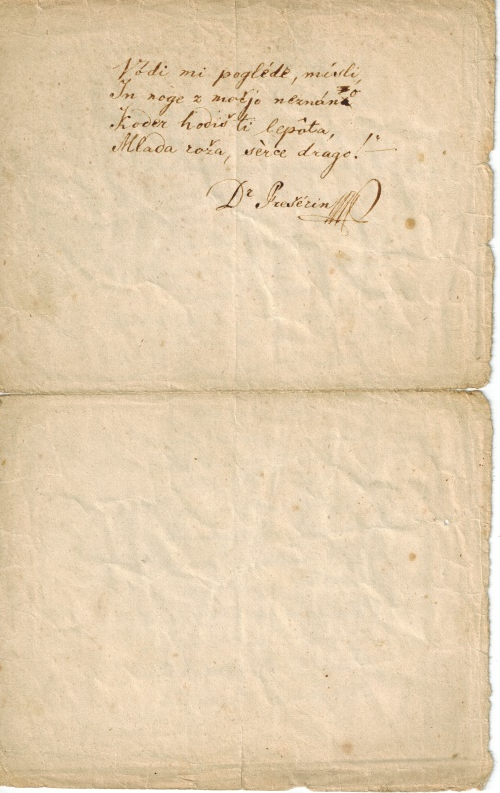 Vódi mi poglède, mísli,
In noge z močjo neznáno
Koder hodiš ti lepôta,
Mlada roža, sèrce drago!"
Dr Prešérin